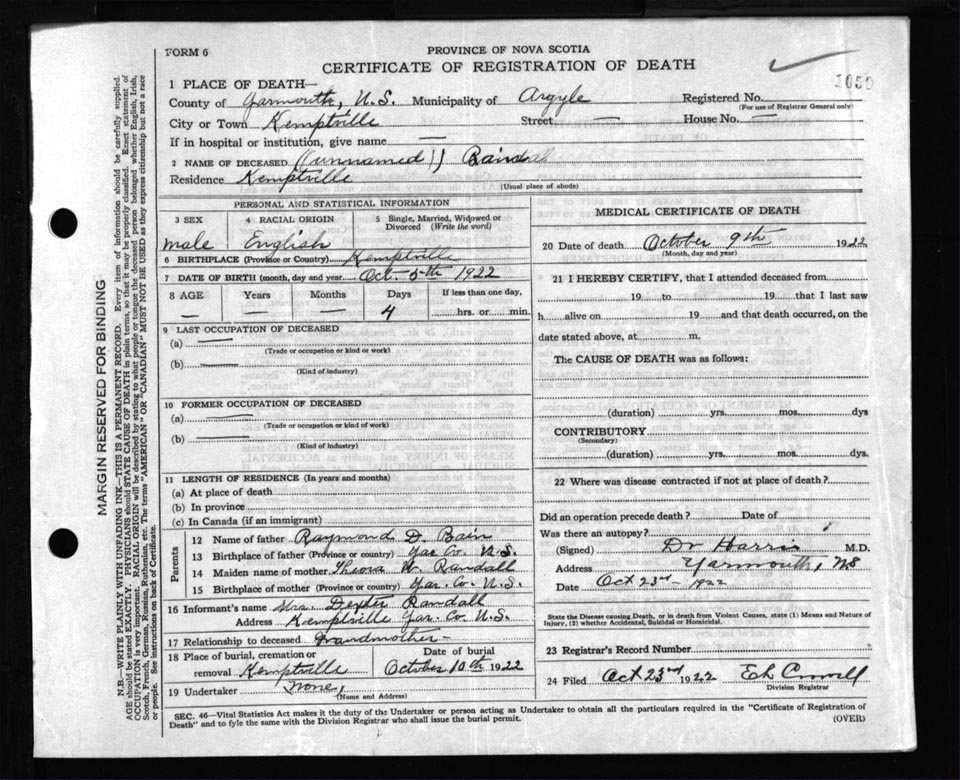 FORM 6
PROVINCE OF NOVA SCOTIA
CERTIFICATE OF REGISTRATION OF DEATH
1050
1 PLACE OF DEATH—
County of Yarmouth, N.S. Municipality of Argyle Registered No.
(For use of Registrar General only)
City or Town Kemptville Street — House No. —
If in hospital or institution, give name —
2 NAME OF DECEASED (unnamed) Bain
Residence Kemptville
(Usual place of abode)
PERSONAL AND STATISTICAL INFORMATION
3 SEX 4 RACIAL ORIGIN 5 Single, Married, Widowed or Divorced (Write the word)
male English
6 BIRTHPLACE (Province or Country) Kemptville
7 DATE OF BIRTH (month, day and year) Oct 5th 1922
8 AGE Years Months Days If less than one day,
— — — 4 hrs. or min.
9 LAST OCCUPATION OF DECEASED
(a) —
(Trade or occupation or kind or work)
(b) —
(Kind of industry)
10 FORMER OCCUPATION OF DECEASED
(a) —
(Trade or occupation or kind of work)
(b) —
(Kind of industry)
11 LENGTH OF RESIDENCE (In years and months)
(a) At place of death
(b) In province
(c) In Canada (if an immigrant)
Parents
12 Name of father Raymond D. Bain
13 Birthplace of father (Province or country) Yar Co. N.S.
14 Maiden name of mother W. Randall
15 Birthplace of mother (Province or country) Yar. Co. N.S.
16 Informant's name Mrs. Dexter Randall
Address Kemptville Yar. Co. N.S.
17 Relationship to deceased Grandmother —
18 Place of burial, cremation or removal Kemptville
Date of burial
October 10th 1922
19 Undertaker None,
(Name and Address)
MEDICAL CERTIFICATE OF DEATH
20 Date of death October 9th 1922
(Month, day and year)
21 I HEREBY CERTIFY, that I attended deceased from
19 to 19 that I last saw
h alive on 19 and that death occurred, on the
date stated above, at m.
The CAUSE OF DEATH was as follows:
(duration) yrs. mos. dys
CONTRIBUTORY
(Secondary)
(duration) yrs. mos. dys.
22 Where was disease contracted if not at place of death?
Did an operation precede death? Date of
Was there an autopsy?
(Signed) Dr Harris M.D.
Address Yarmouth, NS
Date Oct 23d — 1922
State the Disease causing Death, or in death from Violent Causes, state (1) Means and Nature of
Injury, (2) whether Accidental, Suicidal or Homicidal.
23 Registrar's Record Number
24 Filed Oct 23rd 1922
Division Registrar
SEC. 46—Vital Statistics Act makes it the duty of the Undertaker or person acting as Undertaker to obtain all the particulars required in the "Certificate of Registration of
Death" and to fyle the same with the Division Registrar who shall issue the burial permit.
(OVER)
MARGIN RESERVED FOR BINDING
N.B.—WRITE PLAINLY WITH UNFADING INK—THIS IS A PERMANENT RECORD. Every item of information should be carefully supplied.
AGE should be stated EXACTLY. PHYSICIANS should STATE CAUSE OF DEATH in plain terms, so that it may be properly classified. Exact statement of
OCCUPATION is very important. RACIAL ORIGIN will be described by stating to what people or tongue the deceased person belonged whether English, Irish,
Scotch, French, German, Russian, Ruthenian, etc. The terms "AMERICAN" OR "CANADIAN" MUST NOT BE USED as they express citizenship but not a race
or people. See instructions on back of Certificate.